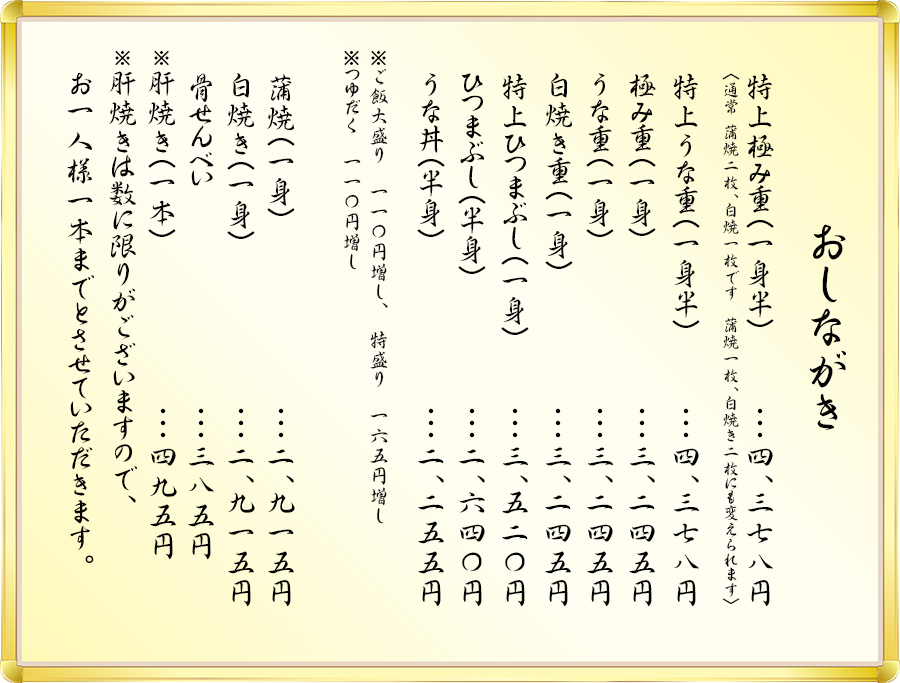 おしながき
特上極み重(一身半) …四、三七八円
〈通常 蒲焼二枚、白焼一枚です 蒲焼一枚、白焼き二枚にも変えられます〉
特上うな重(一身半) …四、三七八円
極み重(一身) …三、二四五円
うな重(一身) …三、二四五円
白焼き重(一身) …三、二四五円
特上ひつまぶし(一身) …三、五二〇円
ひつまぶし(半身) …二、六四〇円
うな丼(半身) …二、二五五円
※ご飯大盛り 一一〇円増し、 特盛り 一六五円増し
※つゆだく 一一〇円増し
蒲焼(一身) …二、九一五円
白焼き(一身) …二、九一五円
骨せんべい …三八五円
※肝焼き(一本) …四九五円
※肝焼きは数に限りがございますので、
お一人様一本までとさせていただきます。